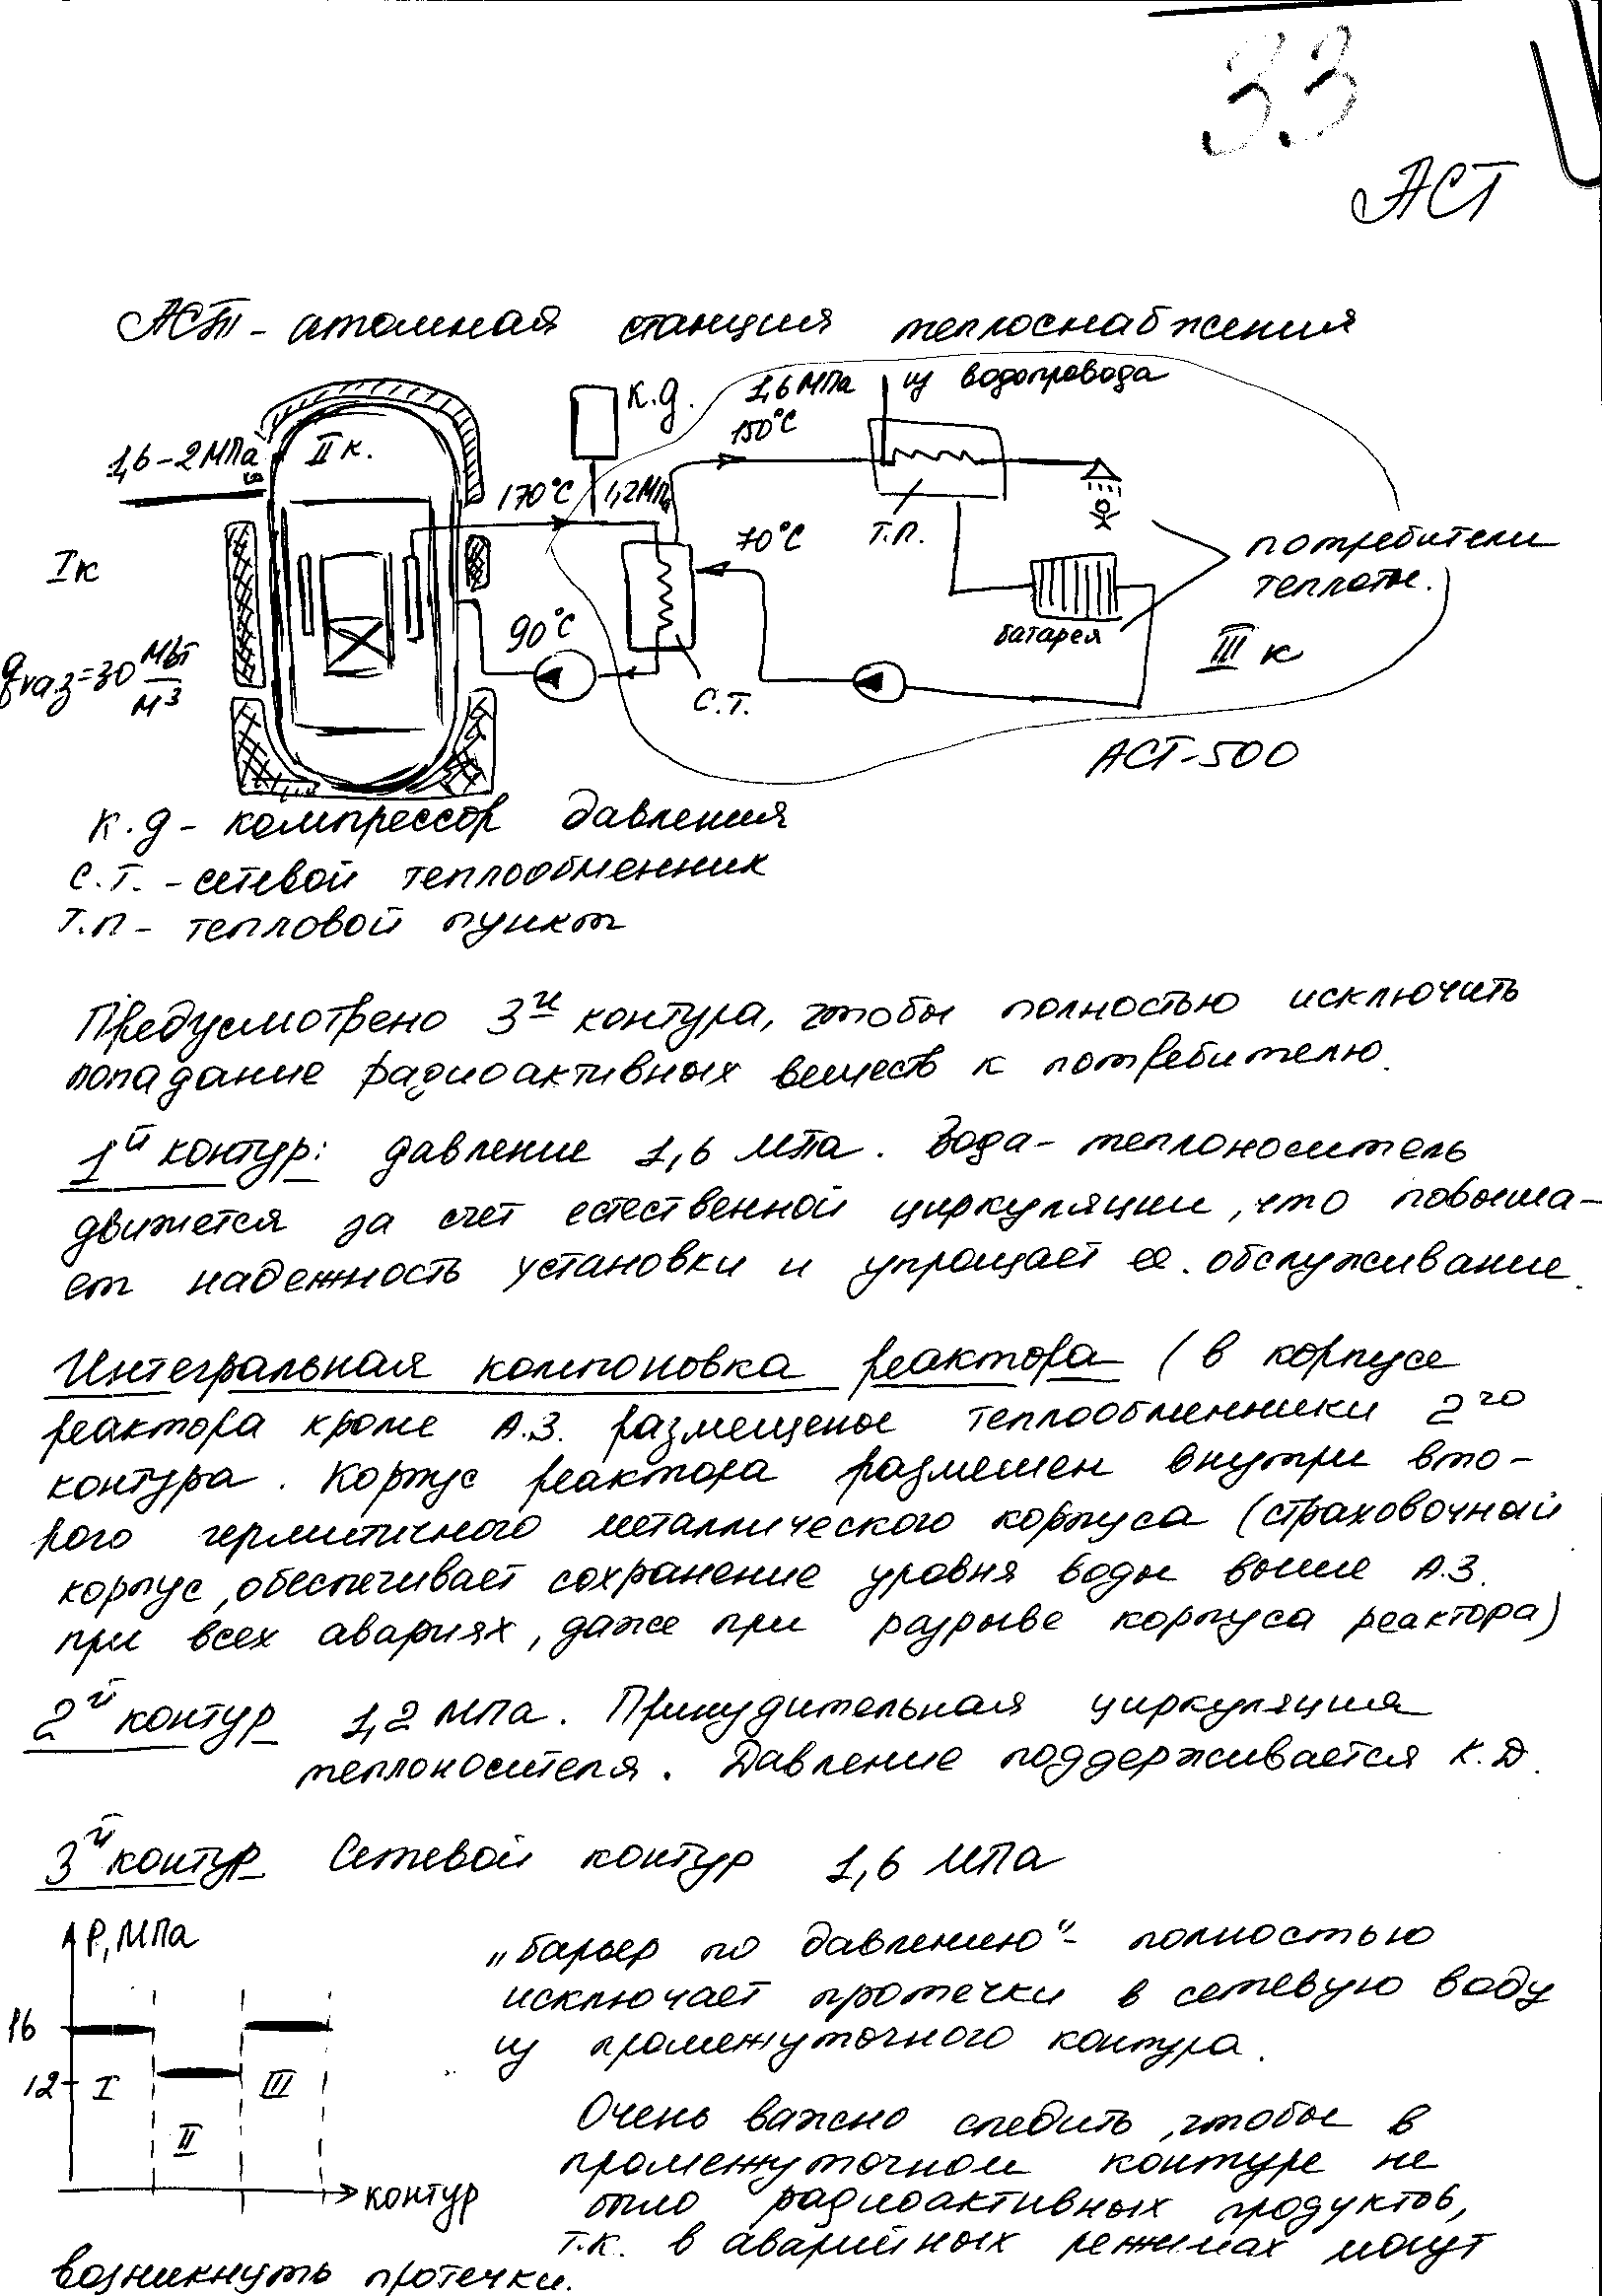 33
АСТ
АСТ - атомная станция теплоснабжения
К.Д.
1,6 МПа
из водопровода
150°С
1,6-2 МПа
II к.
170°С
1,2 МПа
70°С
Т.П.
потребители
теплоты.
I к
90°С
батарея
III к
qчаз=30 МВт/м³
С.Т.
АСТ-500
К.Д - компрессор давления
С.Т. - сетевой теплообменник
Т.П - тепловой пункт
Предусмотрено 3й контура, чтобы полностью исключить
попадание радиоактивных веществ к потребителю.
1й контур: давление 1,6 МПа. Вода - теплоноситель
движется за счет естественной циркуляции, что повыша-
ет надежность установки и упрощает ее обслуживание.
Интегральная компоновка реактора (в корпусе
реактора кроме А.З. размещены теплообменники 2го
контура. Корпус реактора размещен внутри вто-
рого герметичного металлического корпуса (страховочный
корпус, обеспечивает сохранение уровня воды выше А.З.
при всех авариях, даже при разрыве корпуса реактора)
2й контур 1,2 МПа. Принудительная циркуляция
теплоносителя. Давление поддерживается К.Д.
3й контур Сетевой контур 1,6 МПа
P, МПа
16
12
I
II
III
контур
„барьер по давлению“ - полностью
исключает протечки в сетевую воду
из промежуточного контура.
Очень важно следить, чтобы в
промежуточном контуре не
было радиоактивных продуктов,
т.к. в аварийных режимах могут
возникнуть протечки.